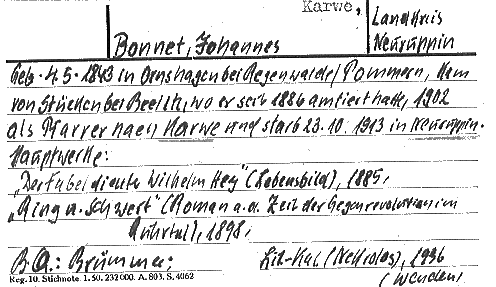 Karwe,
Landkreis
Neuruppin
Bonnet, Johannes
Geb. 4.5.1843 in Ornshagen bei Regenwalde/Pommern, kam
von Stücken bei Beelitz, wo er seit 1886 amtiert hatte, 1902
als Pfarrer nach Karwe und starb 23.10.1913 in Neuruppin.
Hauptwerke:
„Der Fabeldichter Wilhelm Hey" (Lebensbild), 1885,
„Ring u. Schwert" (Roman a.d. Zeit der Gegenrevolution im
Ruhrtal), 1898,
B.Q.: Brümmer; Lit-Kal. (Nekrolog), 1936
Reg. 10. Stichnote. 1. 50. 232000. A. 803. S. 4062